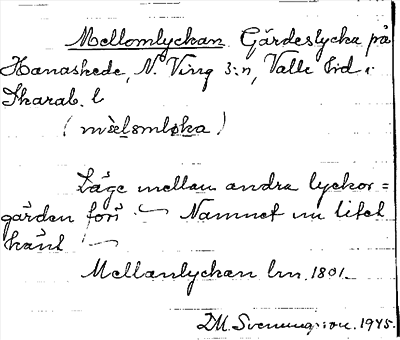 Mellomlyckan Gärdeslycka på
Hanaskede, N. Ving 3:n, Valle hd i
Skarab. l
(mèlsomlska)
Läge mellan andra lyckor =
gärden förr. Namnet nu litet
känt
Mellanlyckan lm. 1801
D.M. Svenungsson. 1945.